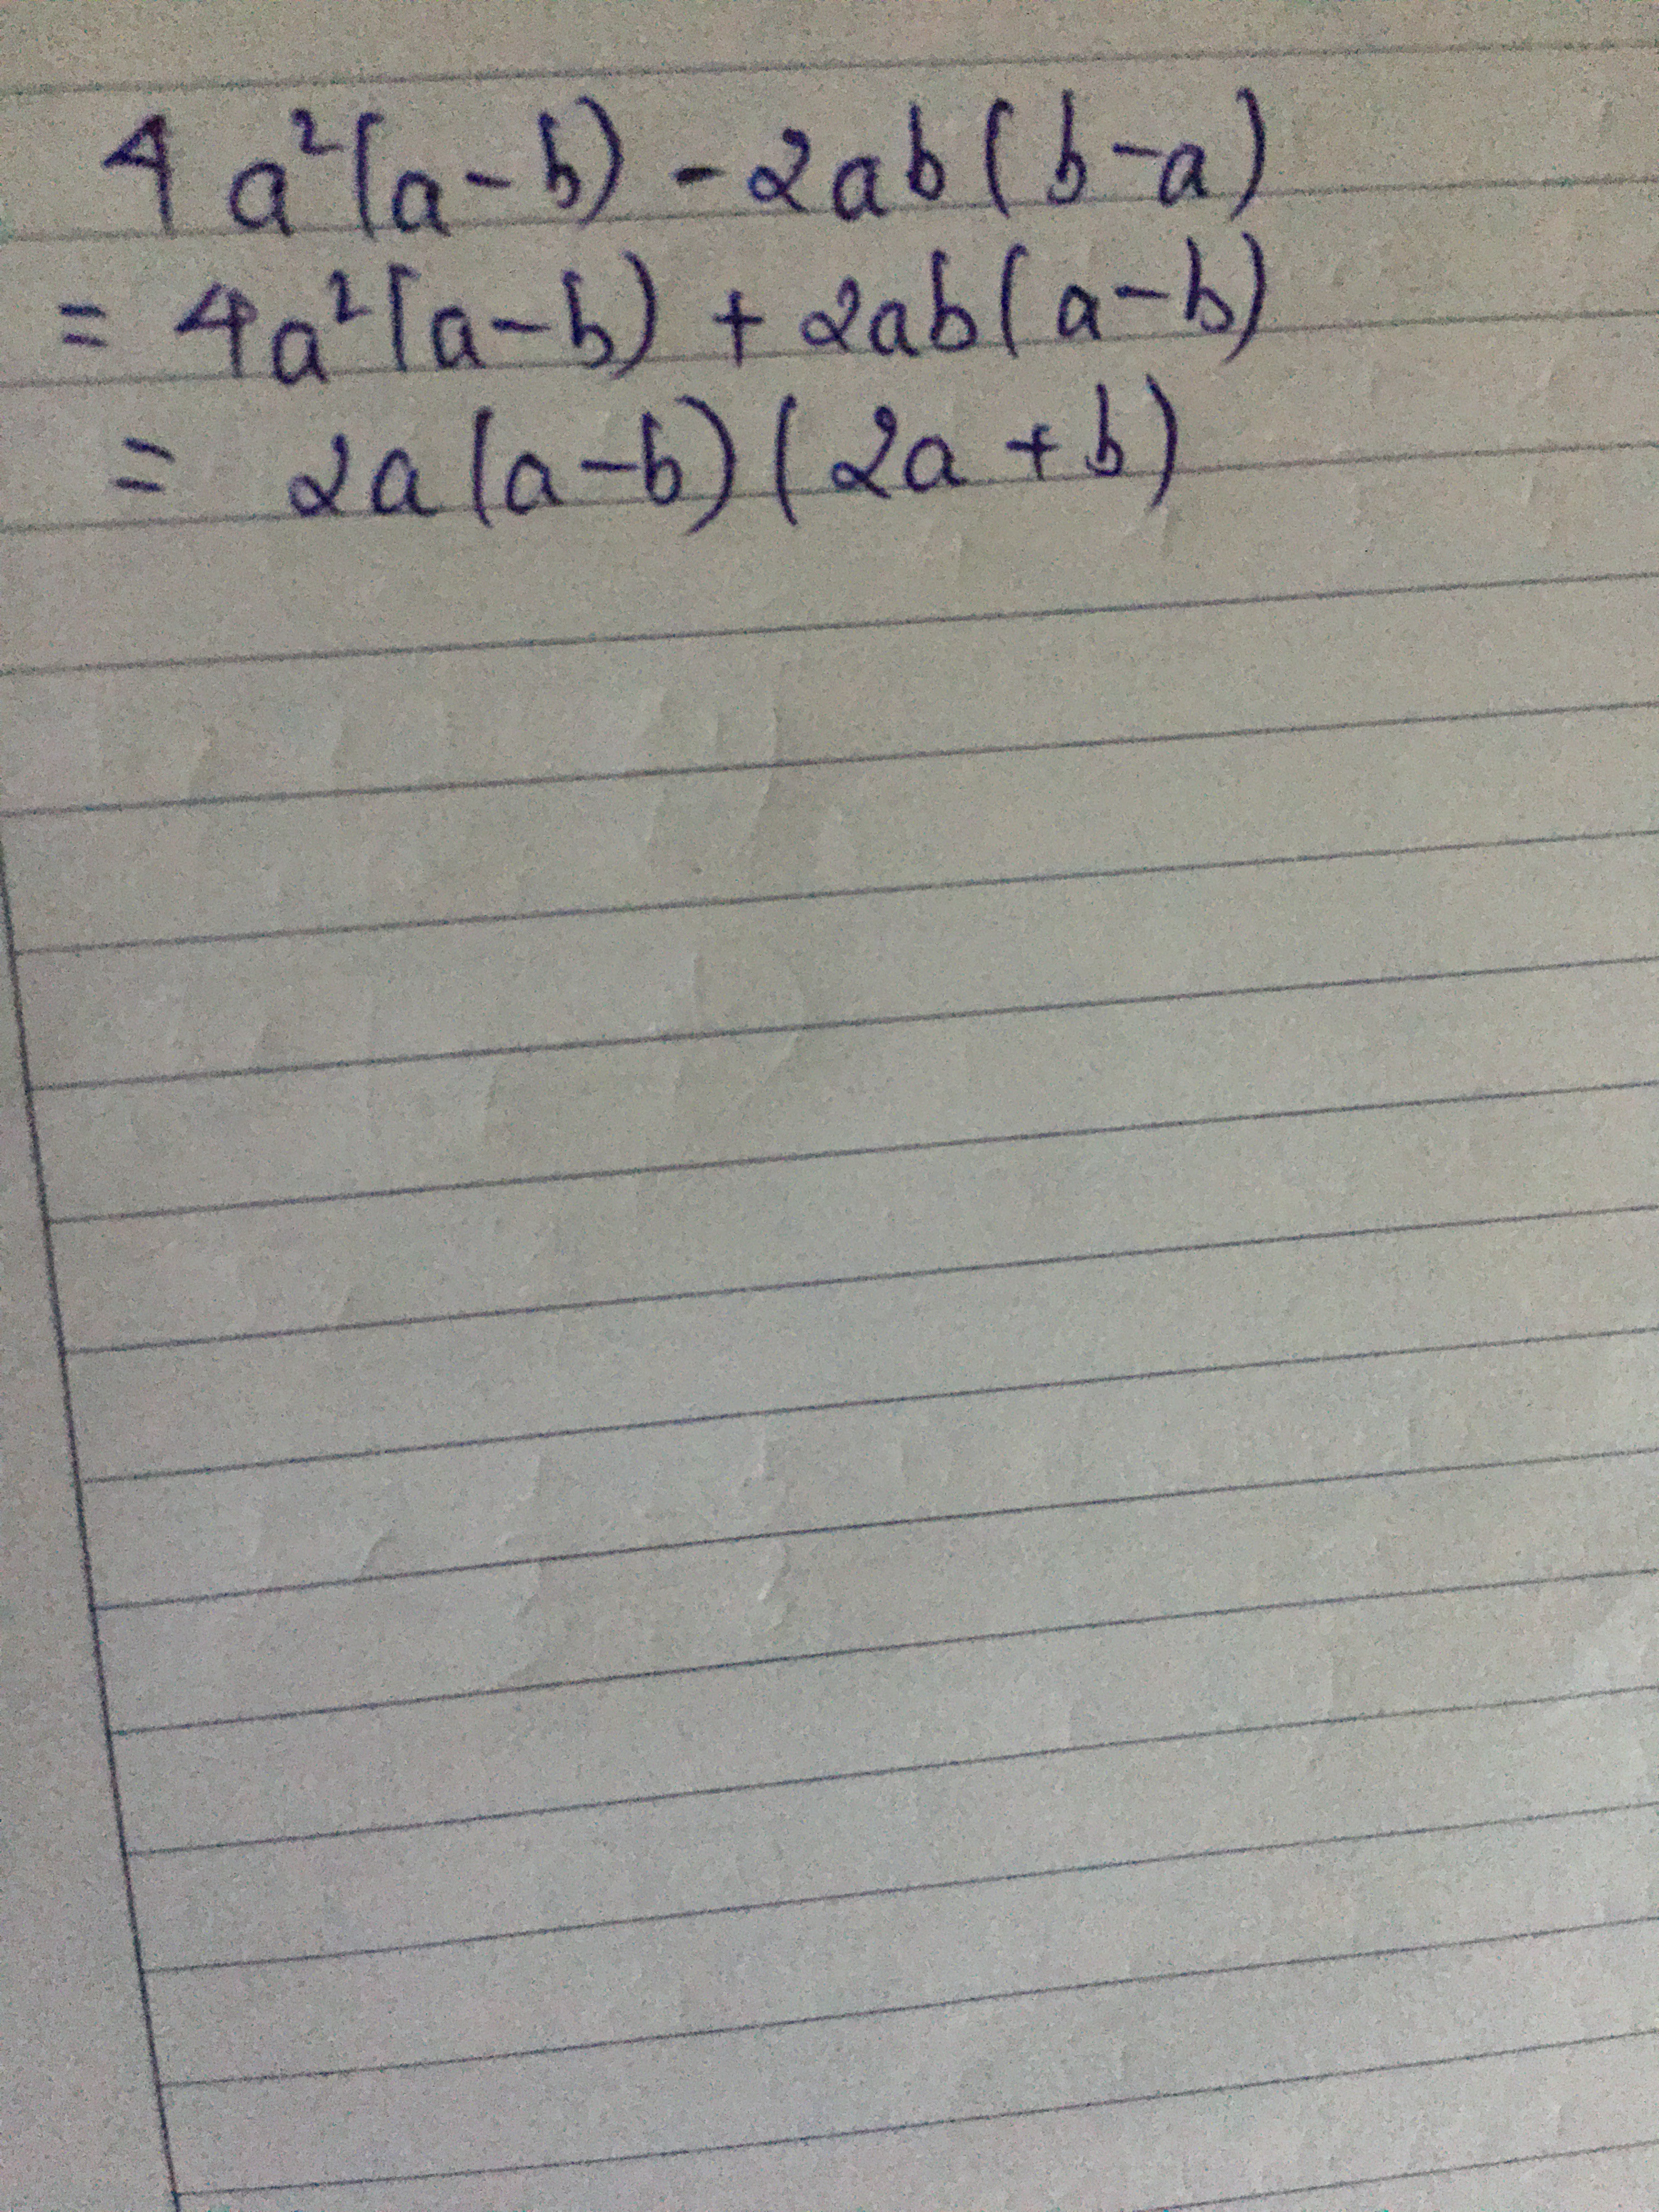 4a²(a-b) - 2ab(b-a)
= 4a²(a-b) + 2ab(a-b)
= 2a(a-b)(2a+b)